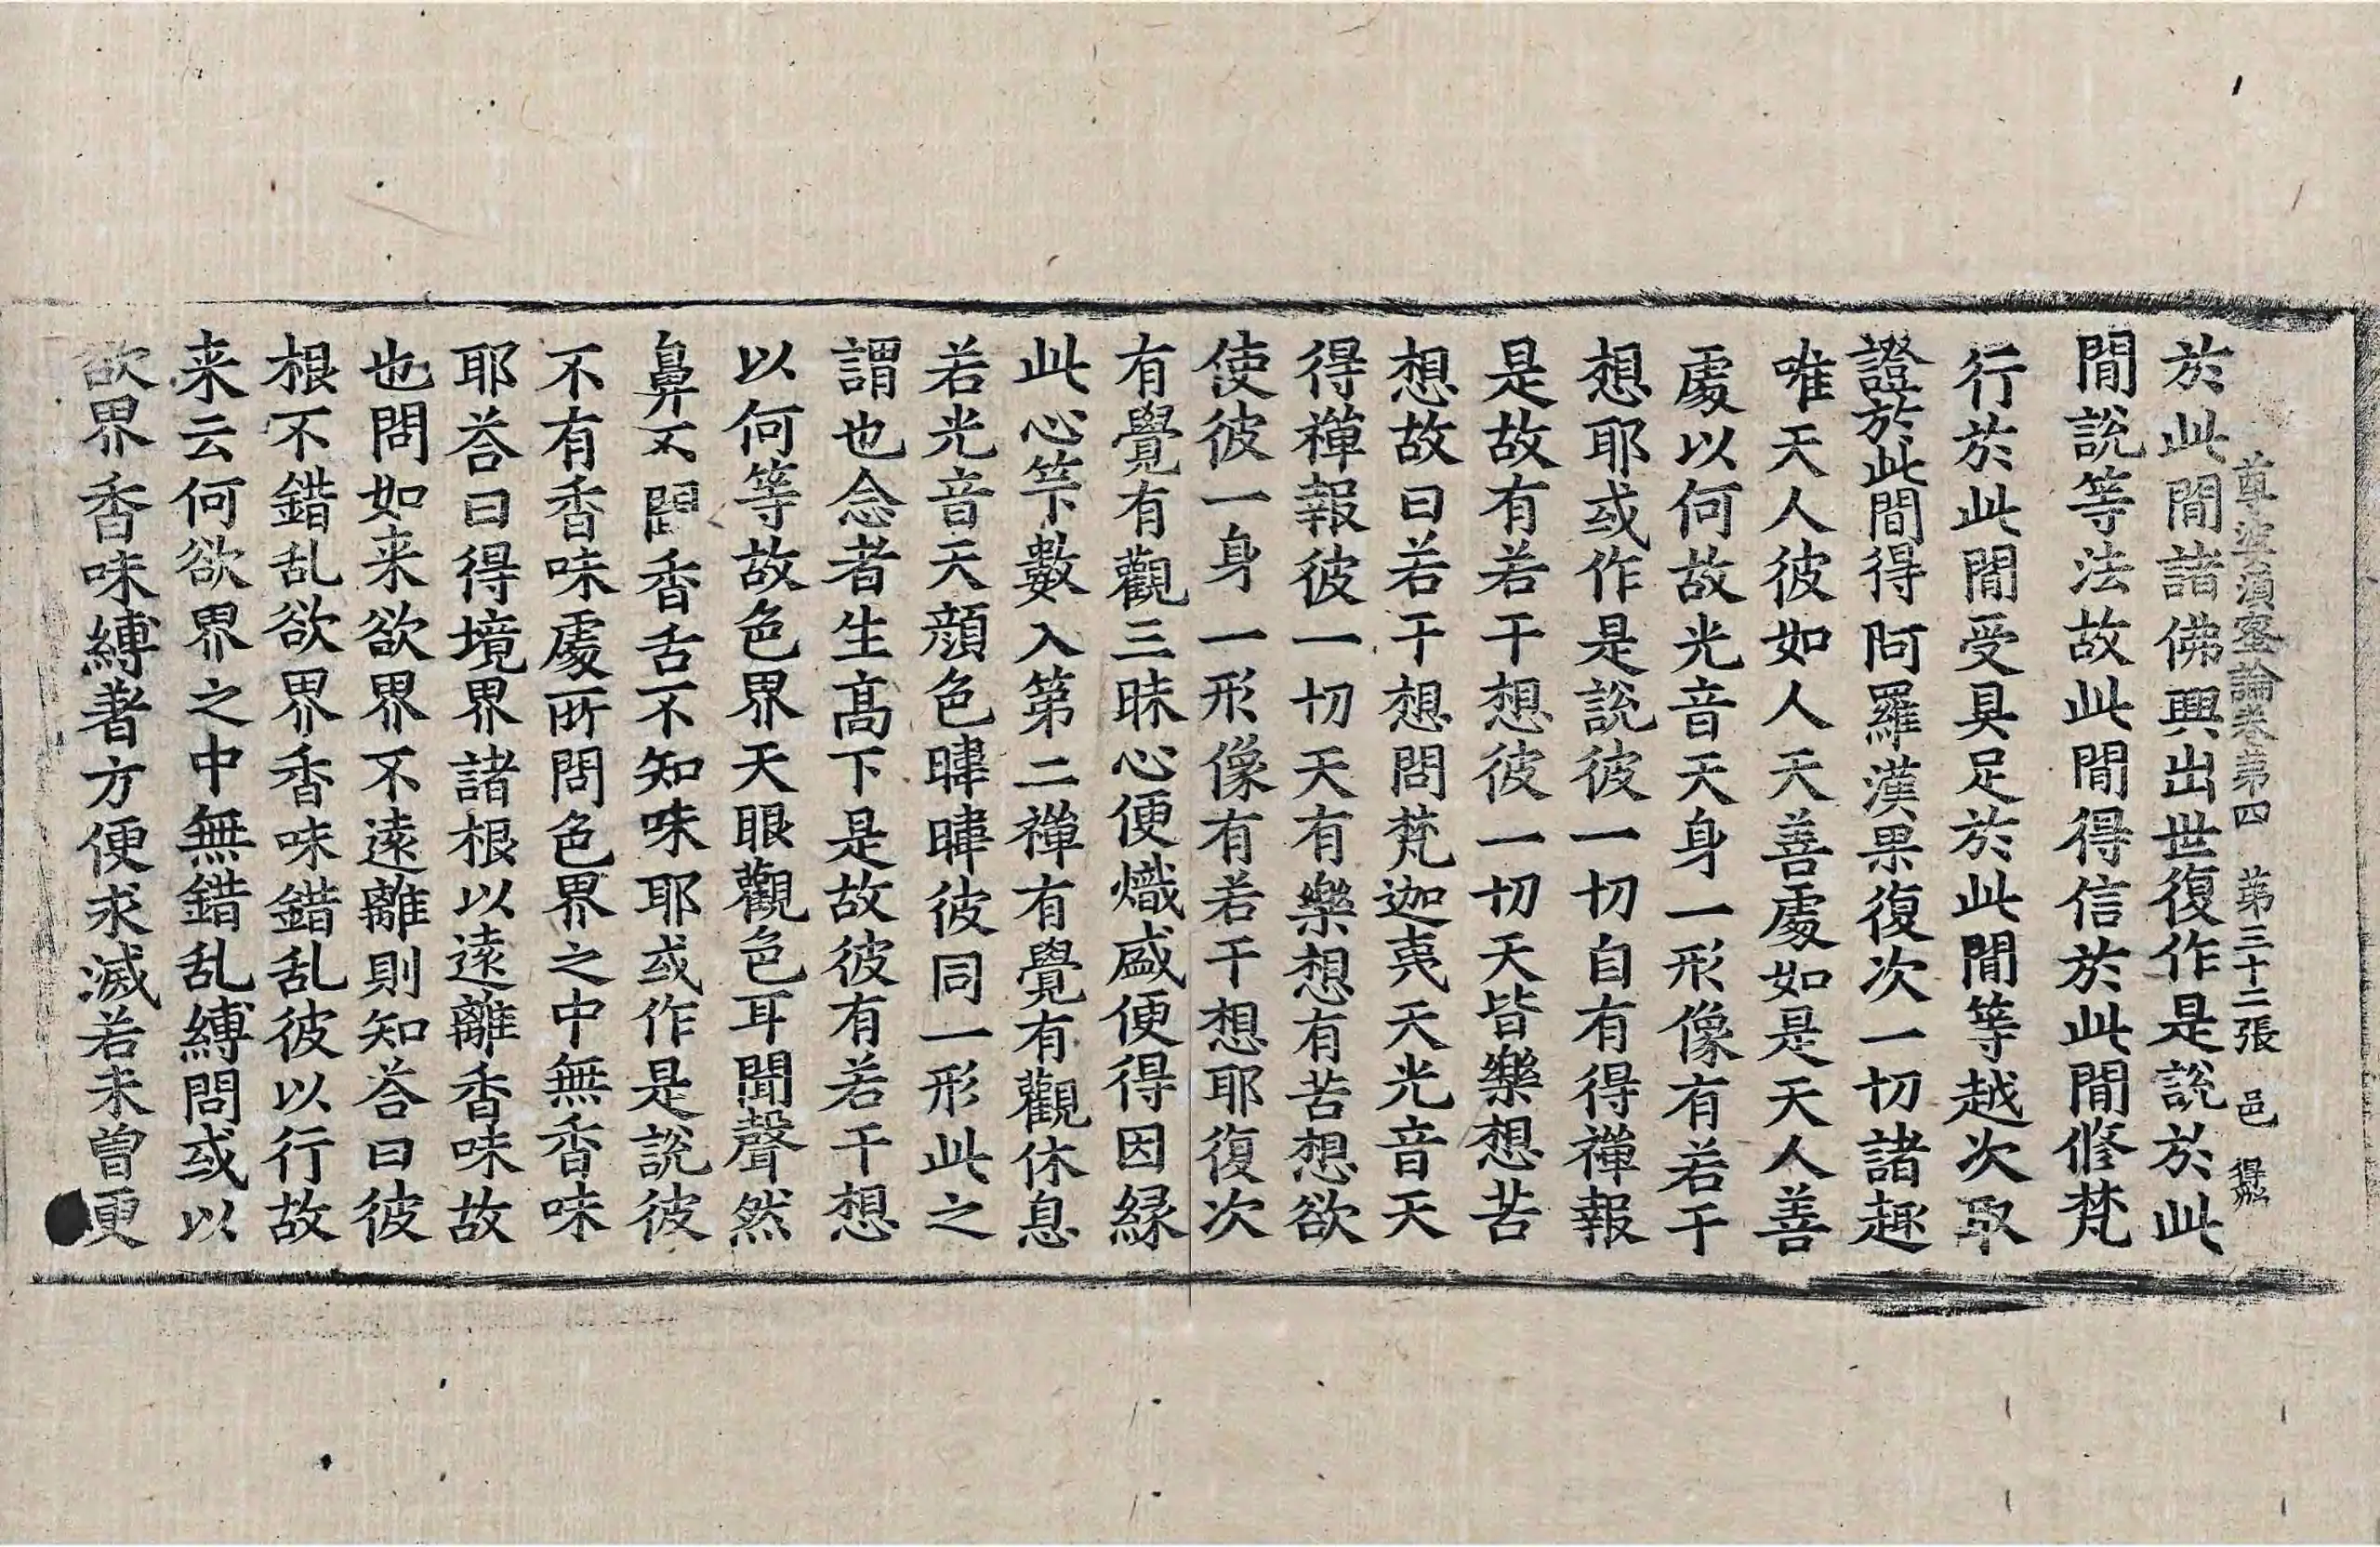 尊婆湏蜜論卷第四 第三十二張 邑
於此閒諸佛興出世復作是說於此
閒說等法故此閒得信於此閒修梵
行於此閒受具足於此閒等越次取
證於此閒得阿羅漢果復次一切諸趣
唯天人彼如人天善處如是天人善
處以何故光音天身一形像有若干
想耶或作是說彼一切自有得禪報
是故有若干想彼一切天皆樂想苦
想故曰若干想問梵迦夷天光音天
得禪報彼一切天有樂想有苦想欲
使彼一身一形像有若干想耶復次
有覺有觀三昧心便熾盛便得因緣
此心等數入第二禪有覺有觀休息
若光音天顔色暐暐彼同一形此之
謂也念者生髙下是故彼有若干想
以何等故色界天眼觀色耳聞聲然
鼻不聞香舌不知味耶或作是說彼
不有香味處所問色界之中無香味
耶荅曰得境界諸根以遠離香味故
也問如来欲界不遠離則知荅曰彼
根不錯乱欲界香味錯乱彼以行故
来云何欲界之中無錯乱縛問或以
欲界香味縛著方便求滅若未曽更